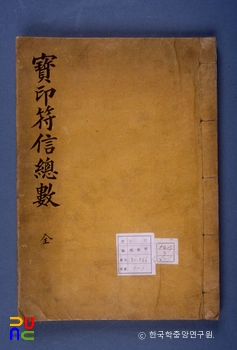 寶印符信總數
全
ⓒ 한국학중앙연구원.